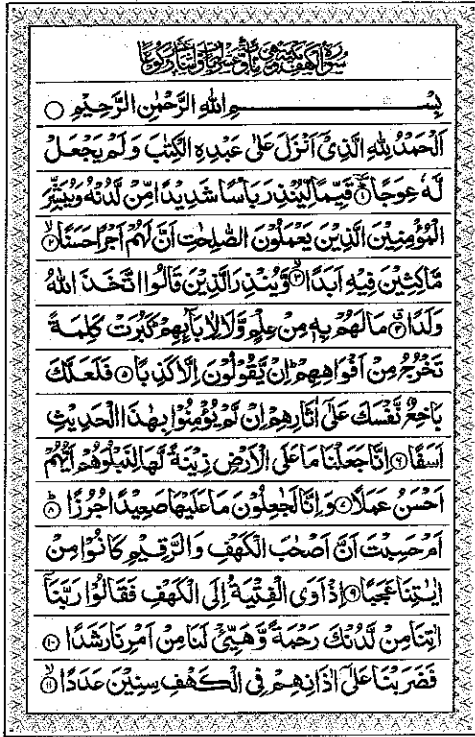 سُوْرَةُ الْكَهْفِ مَكِّيَّةٌ وَّهِيَ مِائَةٌ وَّ رُكُوْعًا
بِسْمِ اللهِ الرَّحْمٰنِ الرَّحِيْمِ ○
اَلْحَمْدُ لِلّٰهِ الَّذِيْٓ اَنْزَلَ عَلٰى عَبْدِهِ الْكِتٰبَ وَلَمْ يَجْعَلْ
لَّهٗ عِوَجًا ۱ قَيِّمًا لِّيُنْذِرَ بَاْسًا شَدِيْدًا مِّنْ لَّدُنْهُ وَيُبَشِّرَ
الْمُؤْمِنِيْنَ الَّذِيْنَ يَعْمَلُوْنَ الصّٰلِحٰتِ اَنَّ لَهُمْ اَجْرًا حَسَنًا ۲
مَّاكِثِيْنَ فِيْهِ اَبَدًا ۳ وَّيُنْذِرَ الَّذِيْنَ قَالُوا اتَّخَذَ اللهُ
وَلَدًا ۴ مَا لَهُمْ بِهٖ مِنْ عِلْمٍ وَّلَا لِاٰبَآىِٕهِمْ كَبُرَتْ كَلِمَةً
تَخْرُجُ مِنْ اَفْوَاهِهِمْ ؕ اِنْ يَّقُوْلُوْنَ اِلَّا كَذِبًا ۵ فَلَعَلَّكَ
بَاخِعٌ نَّفْسَكَ عَلٰٓى اٰثَارِهِمْ اِنْ لَّمْ يُؤْمِنُوْا بِهٰذَا الْحَدِيْثِ
اَسَفًا ۶ اِنَّا جَعَلْنَا مَا عَلَى الْاَرْضِ زِيْنَةً لَّهَا لِنَبْلُوَهُمْ اَيُّهُمْ
اَحْسَنُ عَمَلًا ۷ وَاِنَّا لَجٰعِلُوْنَ مَا عَلَيْهَا صَعِيْدًا جُرُزًا ؕ ۸
اَمْ حَسِبْتَ اَنَّ اَصْحٰبَ الْكَهْفِ وَالرَّقِيْمِ كَانُوْا مِنْ
اٰيٰتِنَا عَجَبًا ۹ اِذْ اَوَى الْفِتْيَةُ اِلَى الْكَهْفِ فَقَالُوْا رَبَّنَآ
اٰتِنَا مِنْ لَّدُنْكَ رَحْمَةً وَّهَيِّئْ لَنَا مِنْ اَمْرِنَا رَشَدًا ۱۰
فَضَرَبْنَا عَلٰٓى اٰذَانِهِمْ فِى الْكَهْفِ سِنِيْنَ عَدَدًا ۱۱